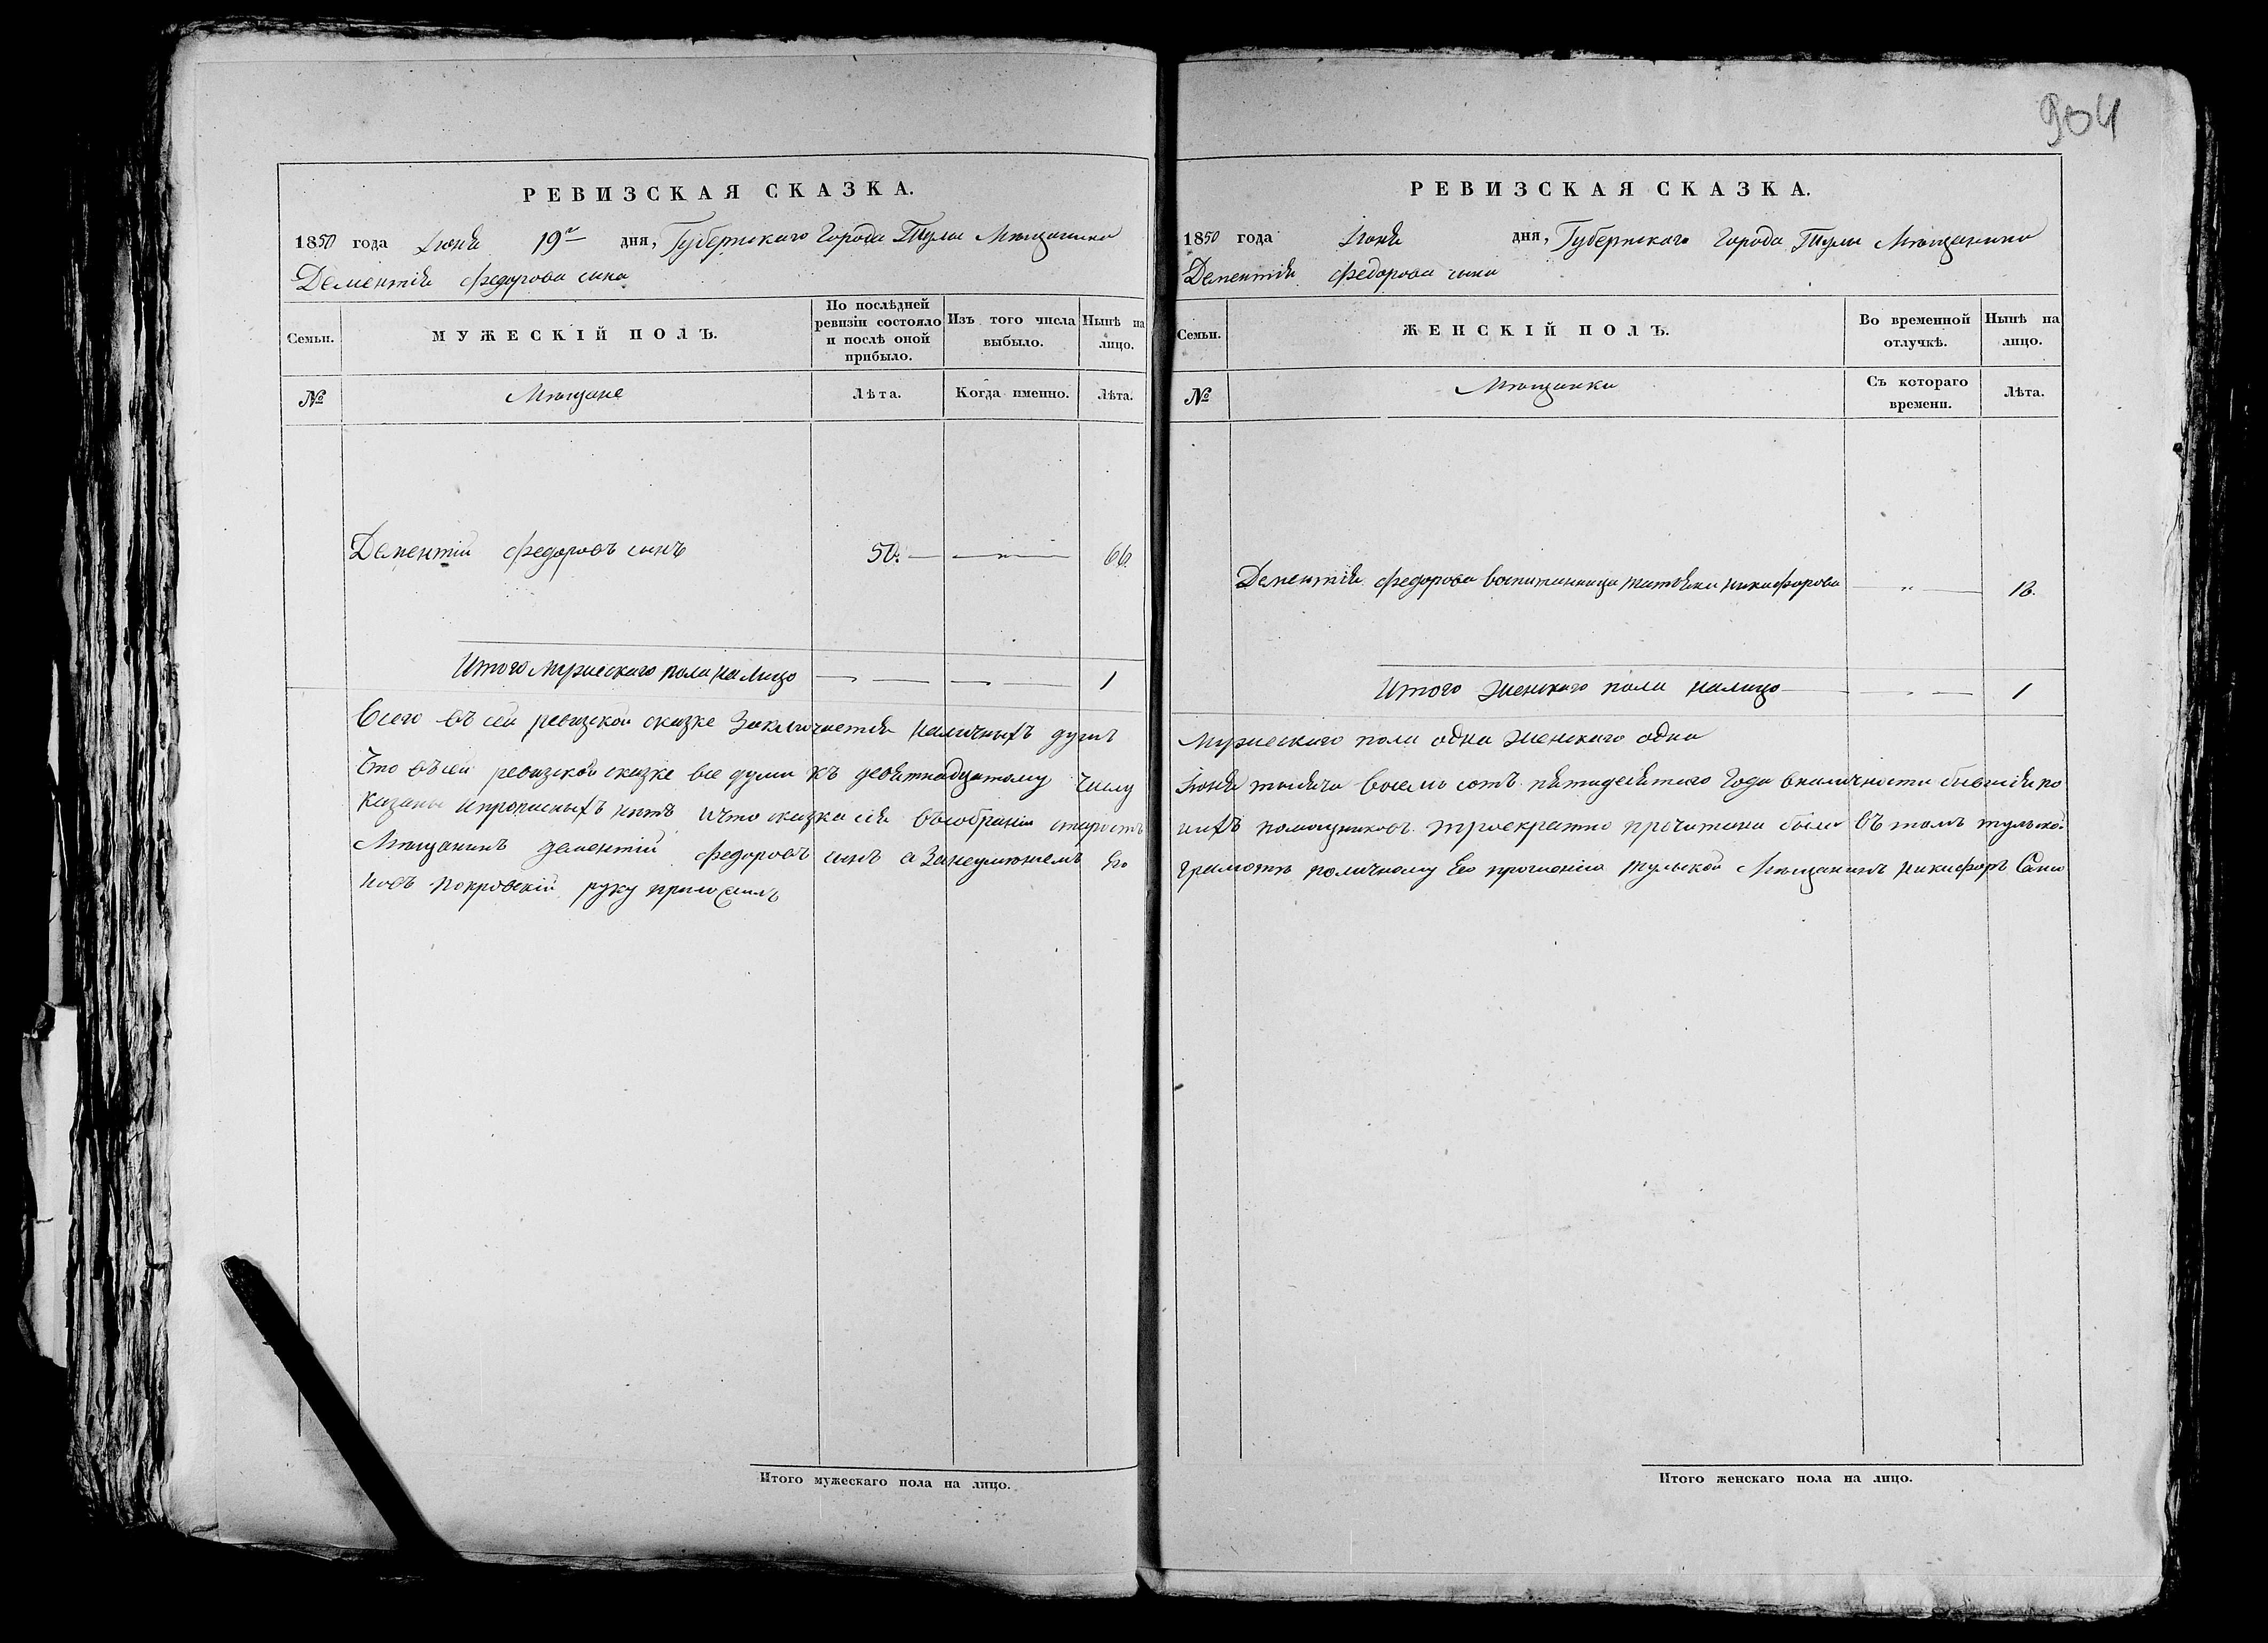 904
РЕВИЗСКАЯ СКАЗКА.
1850 года Iюня 19го дня, Губернскаго Города Тулы Мѣщанина
Дементія Федорова сына
Семьи.
МУЖЕСКІЙ ПОЛЪ.
По послѣдней ревизіи состояло и послѣ оной прибыло.
Изъ того числа выбыло.
Нынѣ на лицо.
№
Мѣщане
Лѣта.
Когда именно.
Лѣта.
Дементій Федоровъ сынъ 50. — — „ — 66.
Итого Мужескаго пола на Лицо — — — — 1
Всего въ сей ревизской сказке Заключается Наличныхъ душъ
Что въ сей ревизской сказке все души къ девятнадцатому Числу
казаны и прописныхъ нѣтъ и что сказка сія в собраніи старостъ
Мѣщанинъ дементій Федоровъ сынъ а За неумѣніемъ Его
новъ Покровскій руку приложилъ
Итого мужескаго пола на лицо.
РЕВИЗСКАЯ СКАЗКА.
1850 года Iюня дня, Губернскаго Города Тулы Мѣщанина
Дементія Федорова сына
Семьи.
ЖЕНСКІЙ ПОЛЪ.
Во временной отлучкѣ.
Нынѣ на лицо.
№
Мѣщанки
Съ котораго времени.
Лѣта.
Дементія Федорова воспитанница Никифорова — „ — 18.
Итого Женскаго пола налицо — — 1
Мужескаго пола одна Женскаго одна
Iюня тысяча восемь сотъ пятидесятаго Года в наличности бывшія по
ихъ помощниковъ троекратно прочитана была въ томъ
грамотѣ по личному Его прошенію Тульской Мѣщанинъ Никифоръ
Итого женскаго пола на лицо.